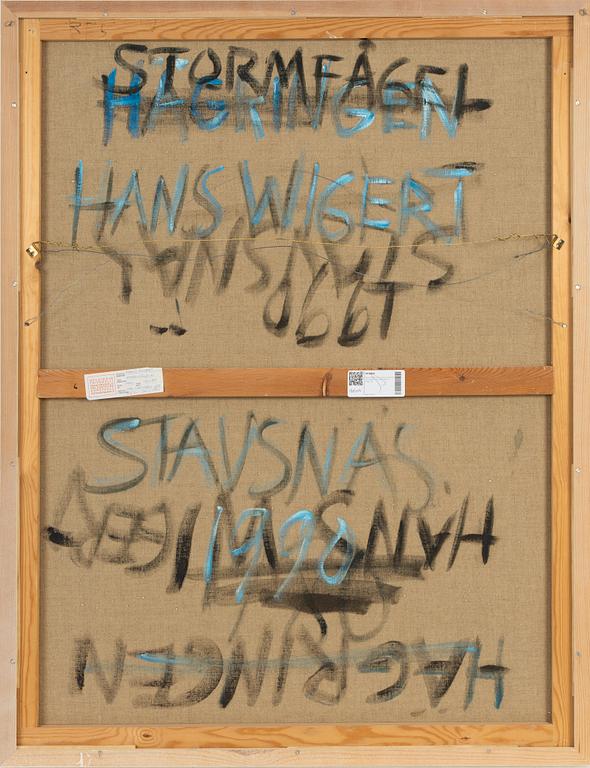 STORMFÅGEL
HÄGRINGEN
HANS WIGERT
STAVSNÄS
1990
STAVSNÄS.
HANS WIGERT
1990
HÄGRINGEN